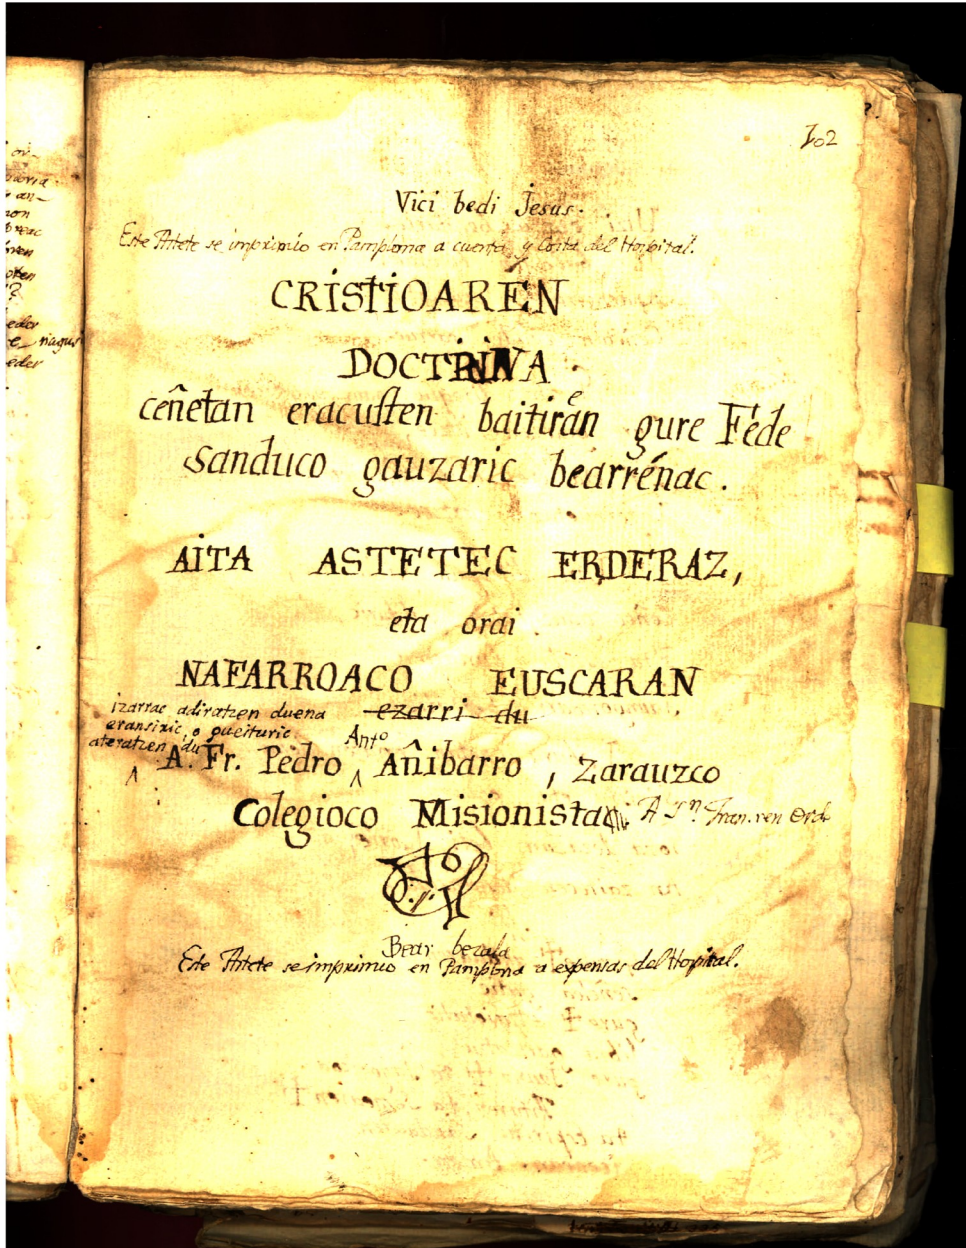 102
Vici bedi Jesus.
Este Astete se imprimio en Pamplona a cuenta, y Costa del Hospital.
CRISTIOAREN
DOCTRINA
ceñetan eracusten baitirán gure Féde
e
Sanduco gauzaric bearrénac.
AITA ASTETEC ERDERAZ,
eta orai
NAFARROACO EUSCARAN
izarrac adiratzen duena ezarri du
eransiric, o gueituric
ateratzen du
A. Fr. Pedro Antº Añibarro, Zarauzco
Colegioco Misionista
Bear bezala
Este Astete se imprimio en Pamplona a expensas del Hospital.
ori-
an-
non
?
eder
e nagus
eder